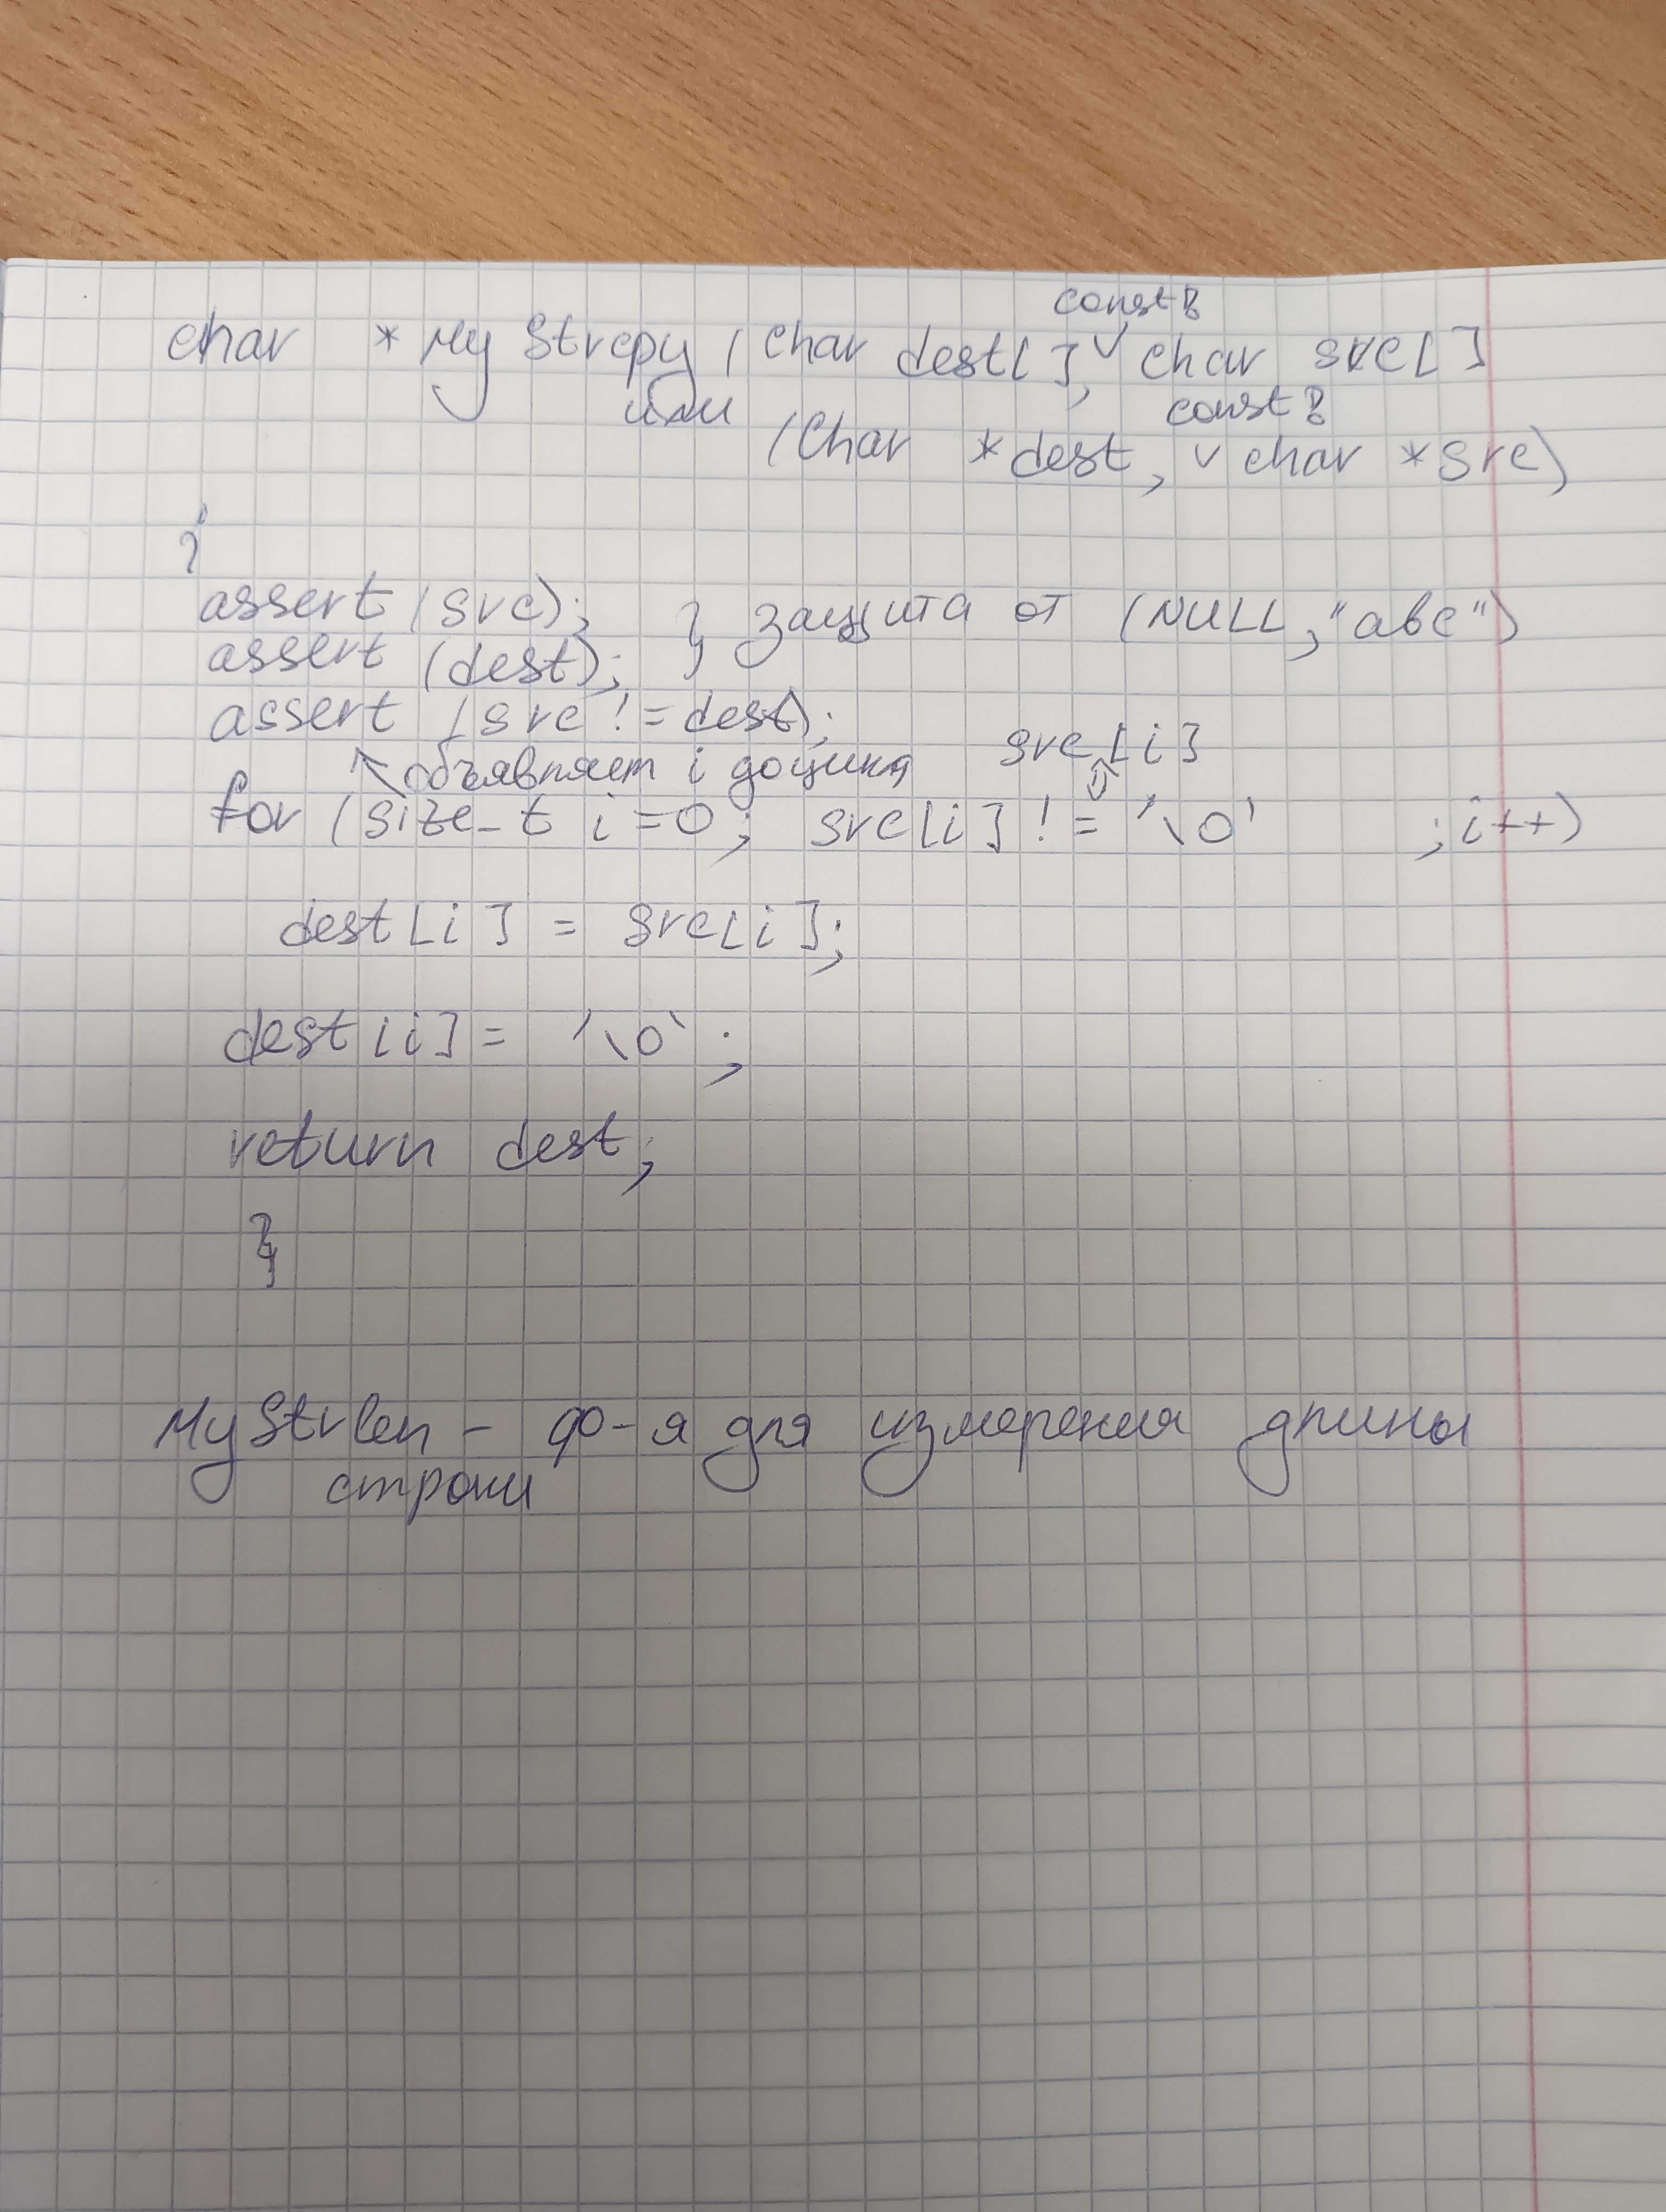 const!
char *MyStrcpy (char dest[], v char src[]
или
const!
(char *dest, v char *src)
{
assert (src);
assert (dest); } защита от (NULL, "abc")
assert (src != dest);
объявляем i до цикла src[i]
for (size_t i = 0; src[i] != '\0' ; i++)
dest[i] = src[i];
dest[i] = '\0';
return dest;
}
MyStrlen - ф-я для измерения длины
строки